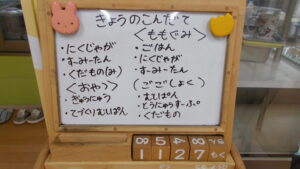 きょうのこんだて
・にくじゃが
・すーみーたん
・くだもの(み)
<おやつ>
・ぎゅうにゅう
・てづくりむしぱん
<ももぐみ>
・ごはん
・にくじゃが
・すーみーたん
(ごごしょく)
・むしぱん
・とうにゅうすーぷ
・くだもの